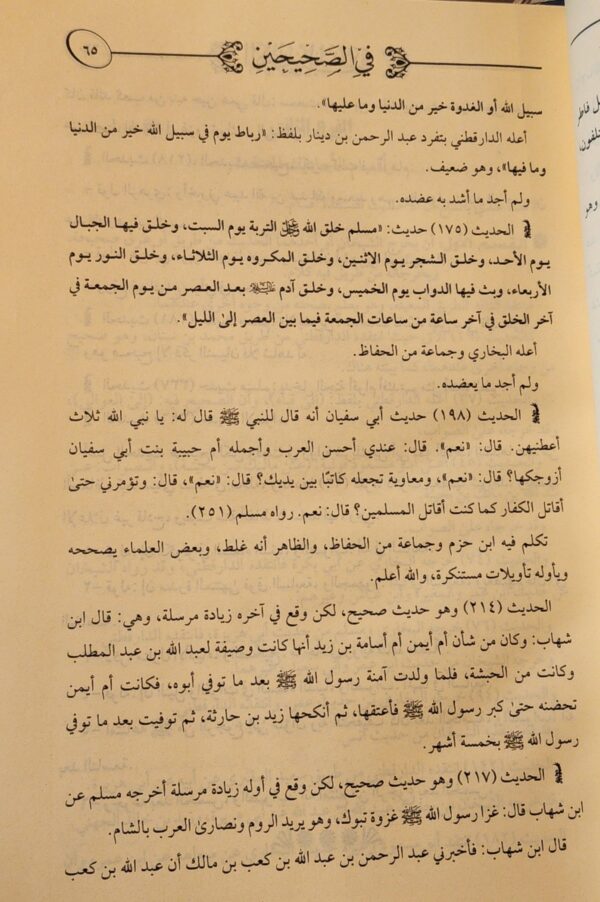 في الصحيحين
٦٥
سبيل الله أو الغدوة خير من الدنيا وما عليها».
أعله الدارقطني بتفرد عبد الرحمن بن دينار بلفظ: «رباط يوم في سبيل الله خير من الدنيا
وما فيها»، وهو ضعيف.
ولم أجد ما أشد به عضده.
الحديث (١٧٥) حديث: «مسلم خلق الله ﷿ التربة يوم السبت، وخلق فيها الجبال
يوم الأحد، وخلق الشجر يوم الاثنين، وخلق المكروه يوم الثلاثاء، وخلق النور يوم
الأربعاء، وبث فيها الدواب يوم الخميس، وخلق آدم عليه السلام بعد العصر من يوم الجمعة في
آخر الخلق في آخر ساعة من ساعات الجمعة فيما بين العصر إلىٰ الليل».
أعله البخاري وجماعة من الحفاظ.
ولم أجد ما يعضده.
الحديث (١٩٨) حديث أبي سفيان أنه قال للنبي ﷺ قال له: يا نبي الله ثلاث
أعطنيهن. قال: «نعم». قال: عندي أحسن العرب وأجمله أم حبيبة بنت أبي سفيان
أزوجكها؟ قال: «نعم»، ومعاوية تجعله كاتبًا بين يديك؟ قال: «نعم»، قال: وتؤمرني حتىٰ
أقاتل الكفار كما كنت أقاتل المسلمين؟ قال: نعم. رواه مسلم (٢٥١).
تكلم فيه ابن حزم وجماعة من الحفاظ، والظاهر أنه غلط، وبعض العلماء يصححه
ويأوله تأويلات مستنكرة، والله أعلم.
الحديث (٢١٤) وهو حديث صحيح، لكن وقع في آخره زيادة مرسلة، وهي: قال ابن
شهاب: وكان من شأن أم أيمن أم أسامة بن زيد أنها كانت وصيفة لعبد الله بن عبد المطلب
وكانت من الحبشة، فلما ولدت آمنة رسول الله ﷺ بعد ما توفي أبوه، فكانت أم أيمن
تحضنه حتىٰ كبر رسول الله ﷺ فأعتقها، ثم أنكحها زيد بن حارثة، ثم توفيت بعد ما توفي
رسول الله ﷺ بخمسة أشهر.
الحديث (٢١٧) وهو حديث صحيح، لكن وقع في أوله زيادة مرسلة أخرجه مسلم عن
ابن شهاب قال: غزا رسول الله ﷺ غزوة تبوك، وهو يريد الروم ونصارىٰ العرب بالشام.
قال ابن شهاب: فأخبرني عبد الرحمن بن عبد الله بن كعب بن مالك أن عبد الله بن كعب